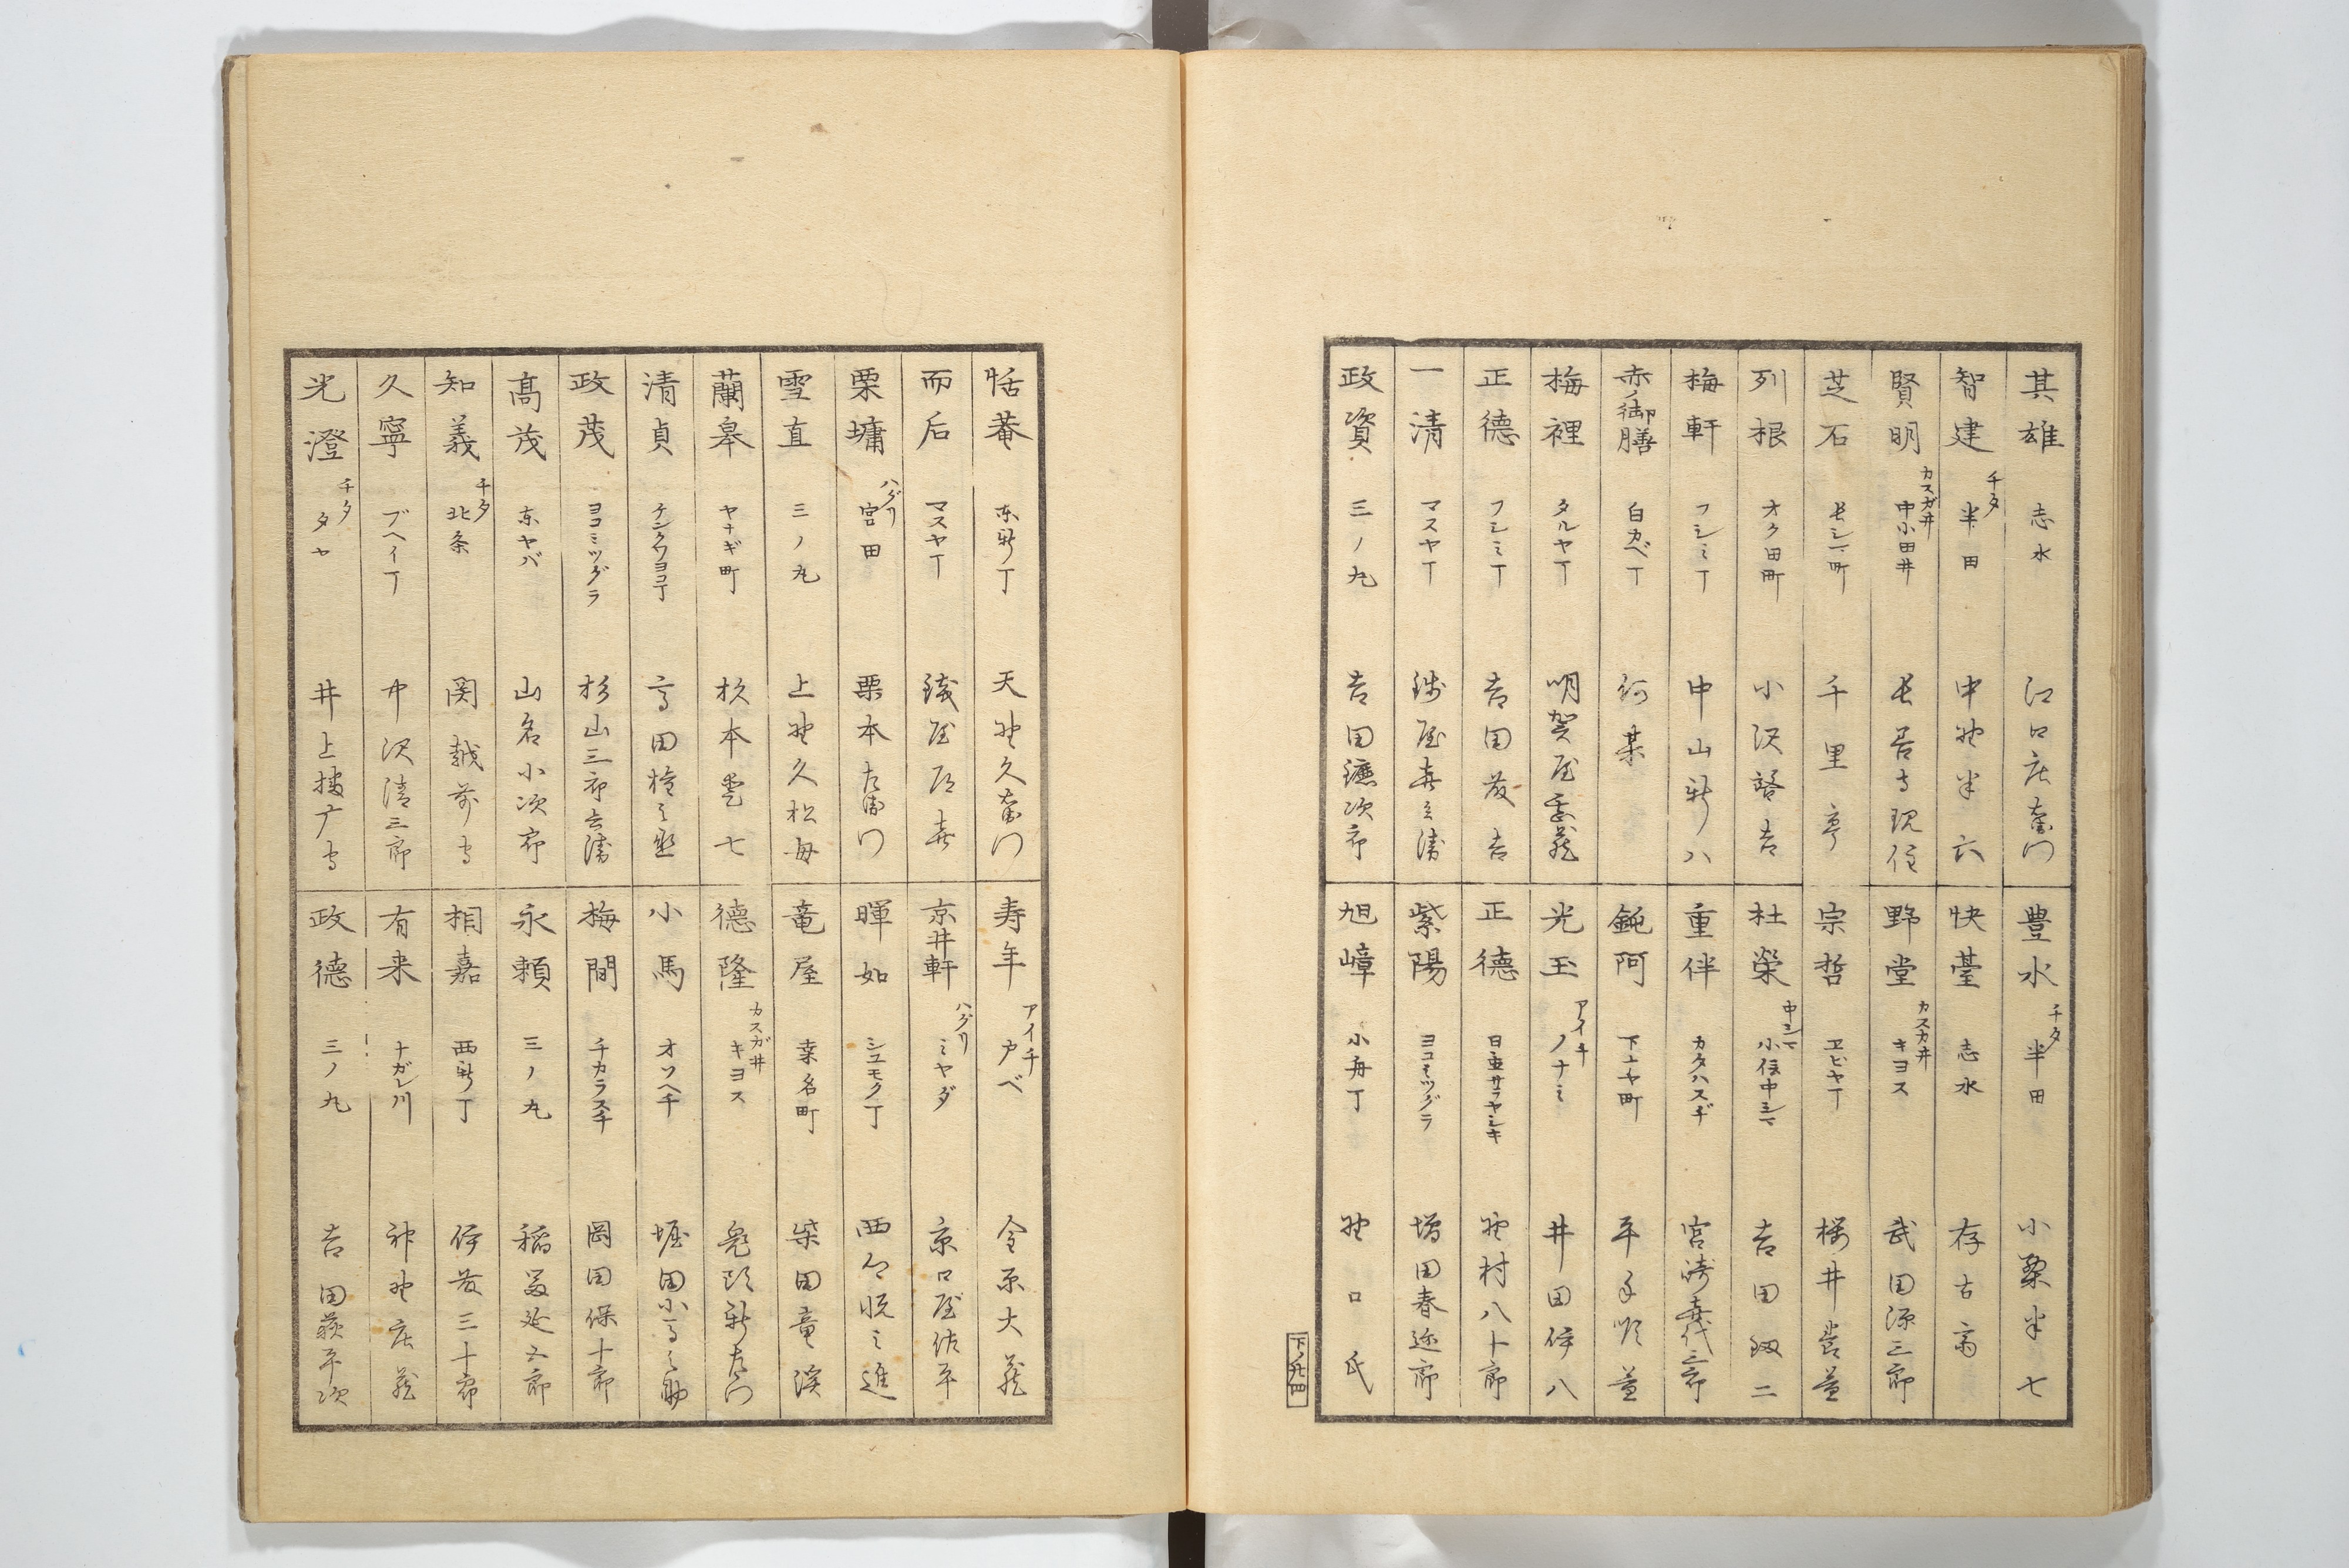 其雄 志水 江口庄左衛門
智建 チタ 半田 中野半六
賢明 カスガ井 中小田井 長善寺現住
芝石 長シマ町 千里亭
列根 オク田町 小沢
梅軒 フシミ丁 中山新八
赤ノ御膳 白カベ丁 何某
梅裡 タルヤ丁 明賀屋
正徳 フシミ丁 吉田友吉
一清 マスヤ丁 銭屋喜兵衛
政資 三ノ丸 吉田鑣次郎
豊水 チタ 半田 小栗半七
快臺 志水 存古斎
野堂 カスカ井 キヨス 武田源三郎
宗哲 ヱビヤ丁 桜井養益
杜榮 中シマ 小信中シマ 吉田 二
重伴 カタハスギ 宮崎喜代三郎
鈍阿 下ナヤ町 平手順益
光玉 アイチ ノナミ 井田伊八
正徳 日置サコヤシキ 野村八十郎
紫陽 ヨコミツグラ 増田春延郎
旭嶂 小舟丁 野口氏
下ノ廿四
恬菴 東新丁 天野久左衛門
而后 マスヤ丁 銭屋
栗墉 ハグリ 宮田 栗本左衛門
雪直 三ノ丸 上野久松母
蘭皋 ヤナギ町 松本雲七
清貞 チンクワヨコ丁 高田権之
政茂 ヨコミツグラ 杉山三郎兵衛
高茂 東ヤバ 山名小次郎
知義 チタ 北条 関越前守
久寧 ブヘイ丁 中沢清三郎
光澄 チタ タヤ 井上播广守
寿年 アイチ 戸ベ 金原大蔵
京井軒 ハグリ ミヤダ 京口屋佐平
暉如 シユモク丁 西 悦之進
竜屋 桑名町 柴田竜渓
徳隆 カスガ井 キヨス 鬼頭新左衛門
小馬 オソヘチ 堀田小馬之助
梅間 チカラスチ 岡田保十郎
永頼 三ノ丸 稲葉延五郎
相嘉 西新丁 伊友三十郎
有来 ナガレ川 神野庄蔵
政徳 三ノ丸 吉田萩平次